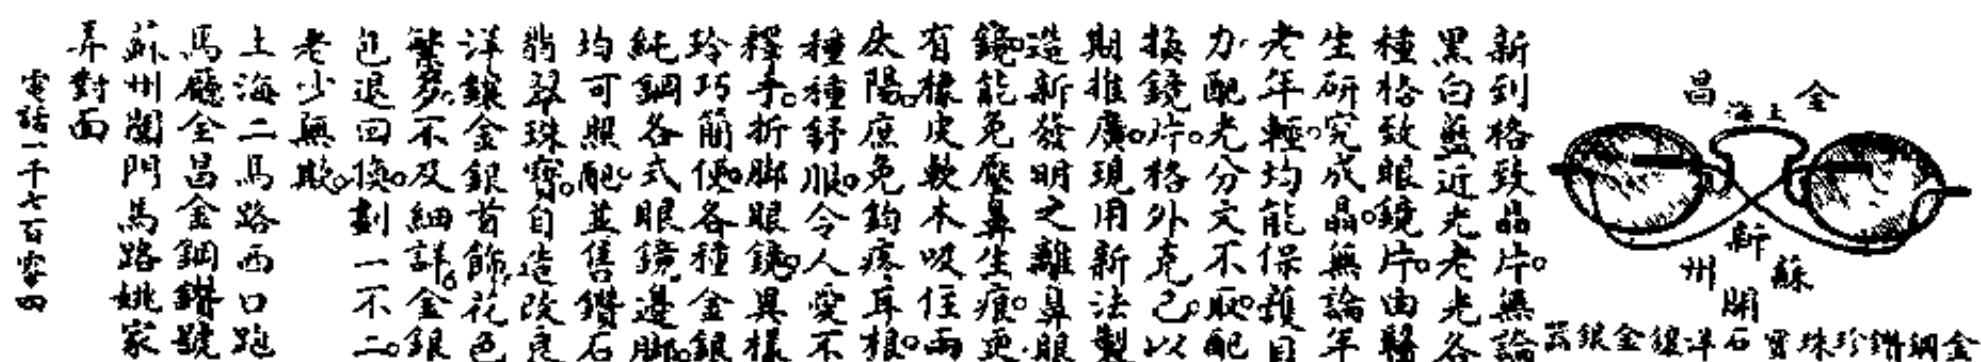 金昌
上海
蘇州
新開
金鋼鑽珍珠寶石洋鑲金銀器
新到格致晶片。無論
黑白藍近光老光各
種格致眼鏡片。由醫
生研究成晶。無論年
老年輕。均能保護目
力。配光分文不取。配
換鏡片。格外克己。以
期推廣。現用新法製
造新發明之離鼻眼
鏡。能免壓鼻生痕。更
有橡皮軟木吸住兩
太陽。庶免鈎疼耳根。
種種舒服。令人愛不
釋手。折脚眼鏡。異樣
玲巧簡便。各種金銀
純鋼各式眼鏡邊脚。
均可照配。並售鑽石
翡翠珠寶。自造改良
洋鑲金銀首飾。花色
繁多。不及細詳。金銀
包退回換。劃一不二。
老少無欺。
上海二馬路西口跑
馬廳金昌金鋼鑽號
蘇州閶門馬路姚家
弄對面
電話一千七百零四